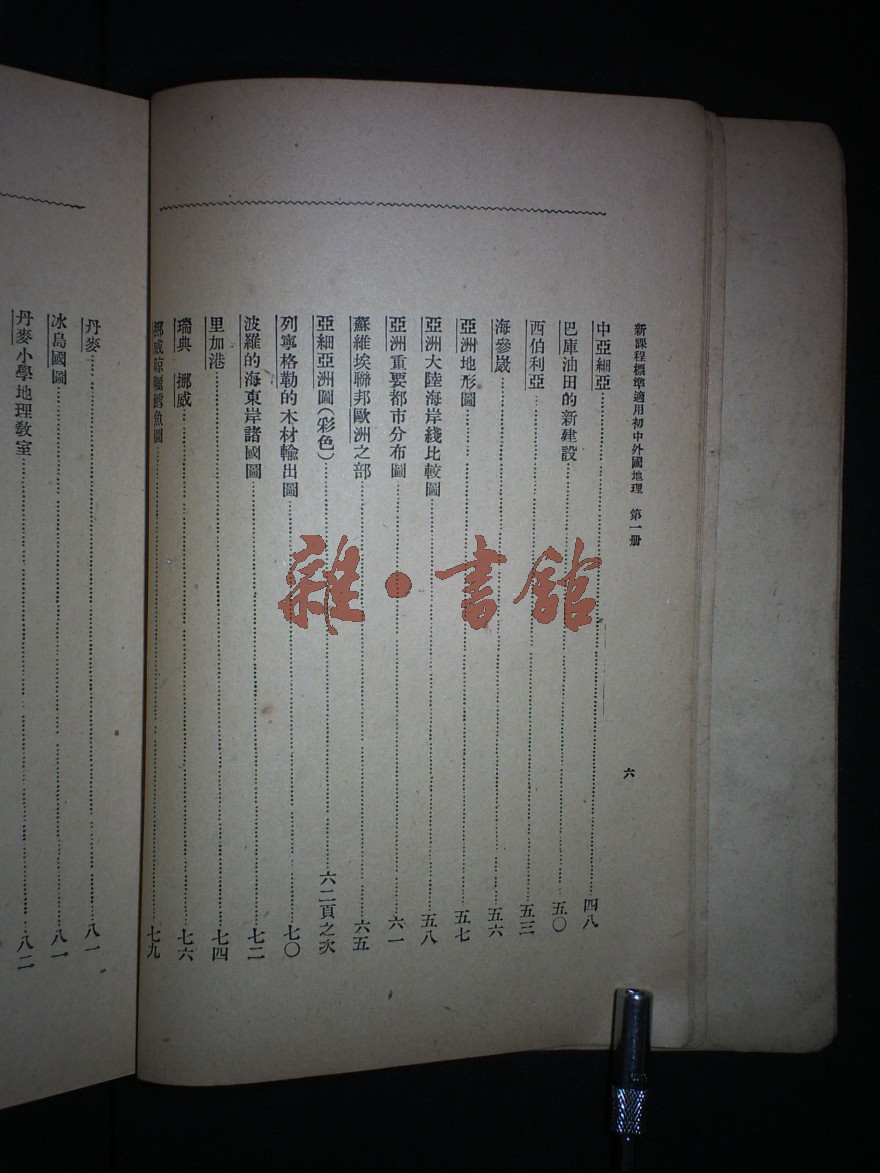 新課程標準適用初中外國地理 第一册
六
中亞細亞……四八
巴庫油田的新建設……五〇
西伯利亞……五三
海參崴……五六
亞洲地形圖……五七
亞洲大陸海岸綫比較圖……五八
亞洲重要都市分布圖……六一
蘇維埃聯邦歐洲之部……六五
亞細亞洲圖(彩色)……六二頁之次
列寧格勒的木材輸出圖……七〇
波羅的海東岸諸國圖……七二
里加港……七四
瑞典 挪威……七六
挪威晾曬鱈魚圖……七九
丹麥……八一
冰島國圖……八一
丹麥小學地理教室……八二
雜·書館